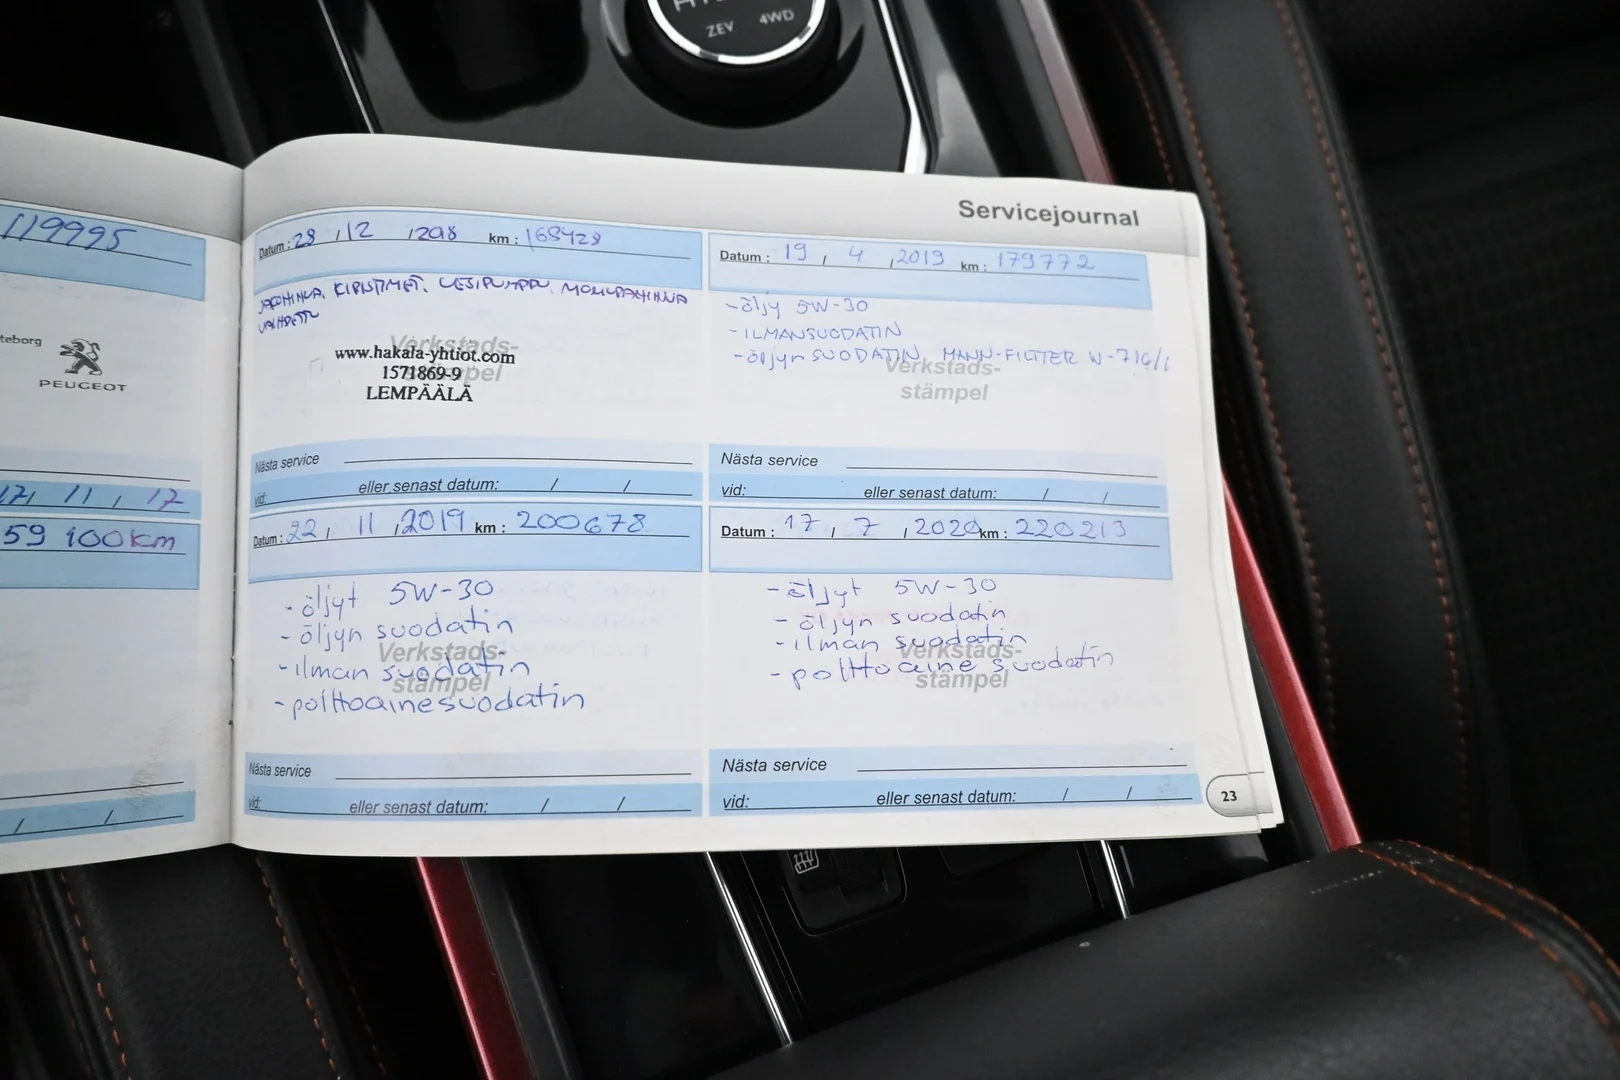 ZEV 4WD
Servicejournal
119995
teborg
PEUGEOT
17, 11, 17
59 100km
Datum: 28 / 12 / 2018 km: 168428
JAKOHIHNA, KIRISTIMET, VESIPUMPPU, MONIURAHIHNA
VAIHDETTU
Verkstads-
stämpel
www.hakala-yhtiot.com
1571869-9
LEMPÄÄLÄ
Nästa service
vid: eller senast datum: / /
Datum : 19 , 4 , 2019 km : 179772
-öljy 5W-30
-ILMANSUODATIN
-öljyn SUODATIN MANN-FILTTER W-716/1
Verkstads-
stämpel
Nästa service
vid: eller senast datum: / /
Datum : 22 , 11 , 2019 km : 200678
-öljyt 5W-30
-öljyn suodatin
-ilman suodatin
-polttoainesuodatin
Verkstads-
stämpel
Nästa service
vid: eller senast datum: / /
Datum : 17 , 7 , 2020 km : 220213
-öljyt 5W-30
-öljyn suodatin
-ilman suodatin
-polttoaine suodatin
Verkstads-
stämpel
Nästa service
vid: eller senast datum: / /
23